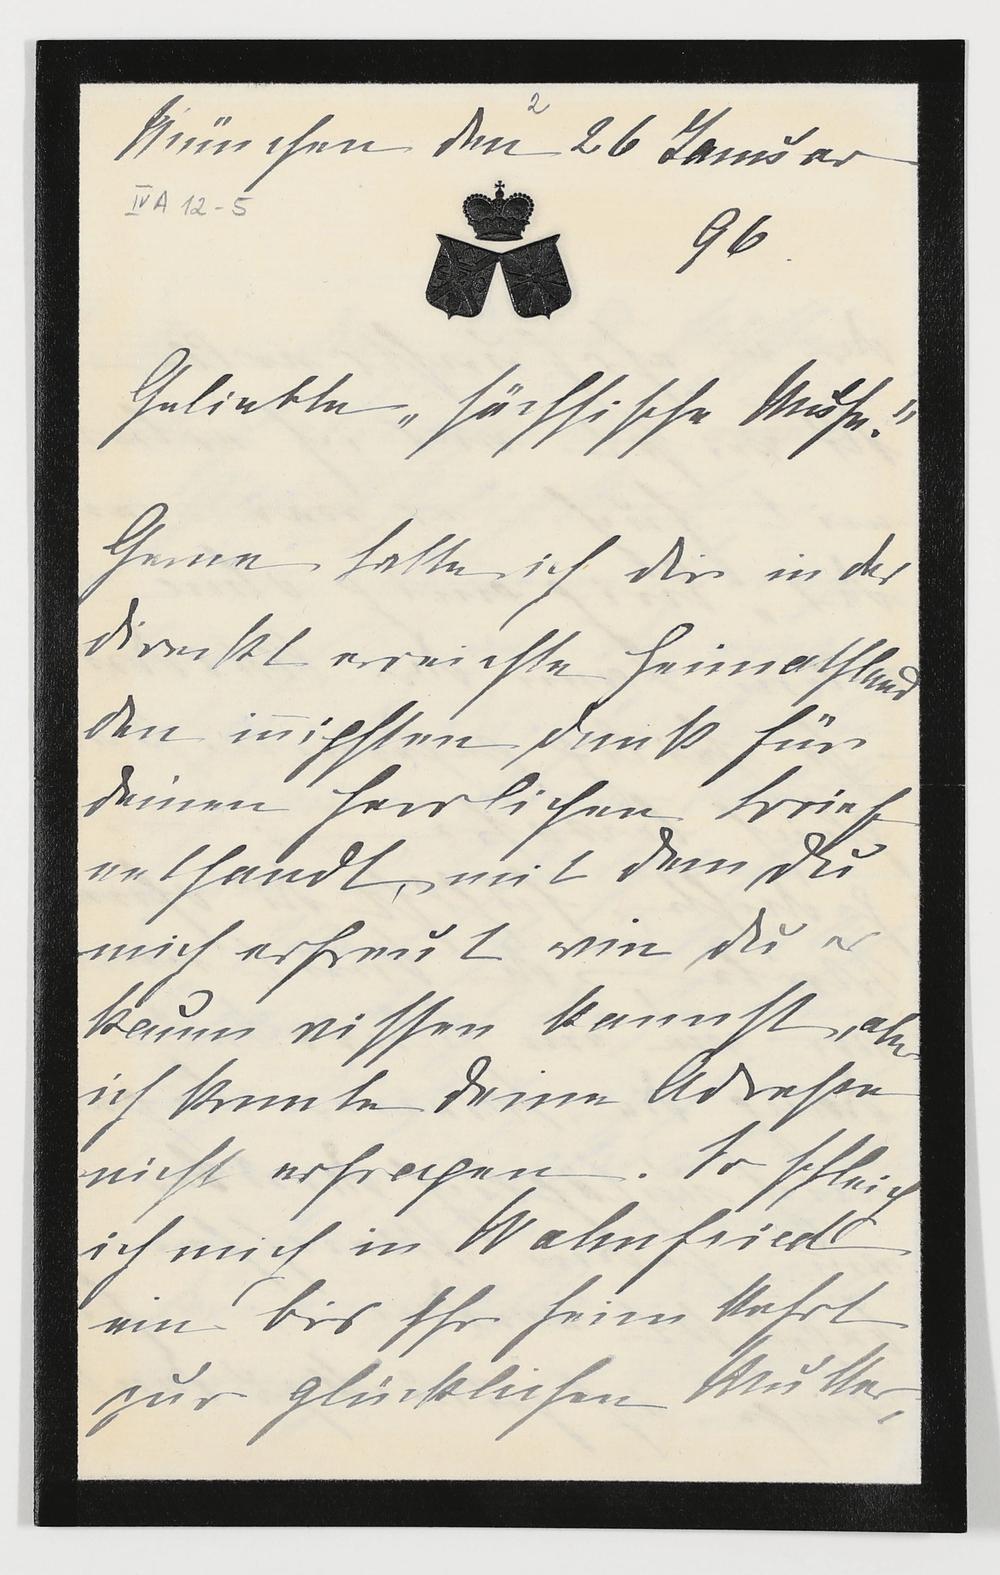 München den 26 Januar
2
IV A 12-5
96.
Geliebte „sächsische Muse."
Gerne hatte ich dir in der
direckt erreichte Heimathland
den iñigsten Dank für
deinen herrlichen Brief
entsandt, mit dem du
mich erfreut wie du es
kaum wissen kannst, aber
ich konnte deine Adresse
nicht erfragen. So schleich
ich mich in Wahnfried
ein bis Ihr heim kehrt
zur glücklichen Mutter,